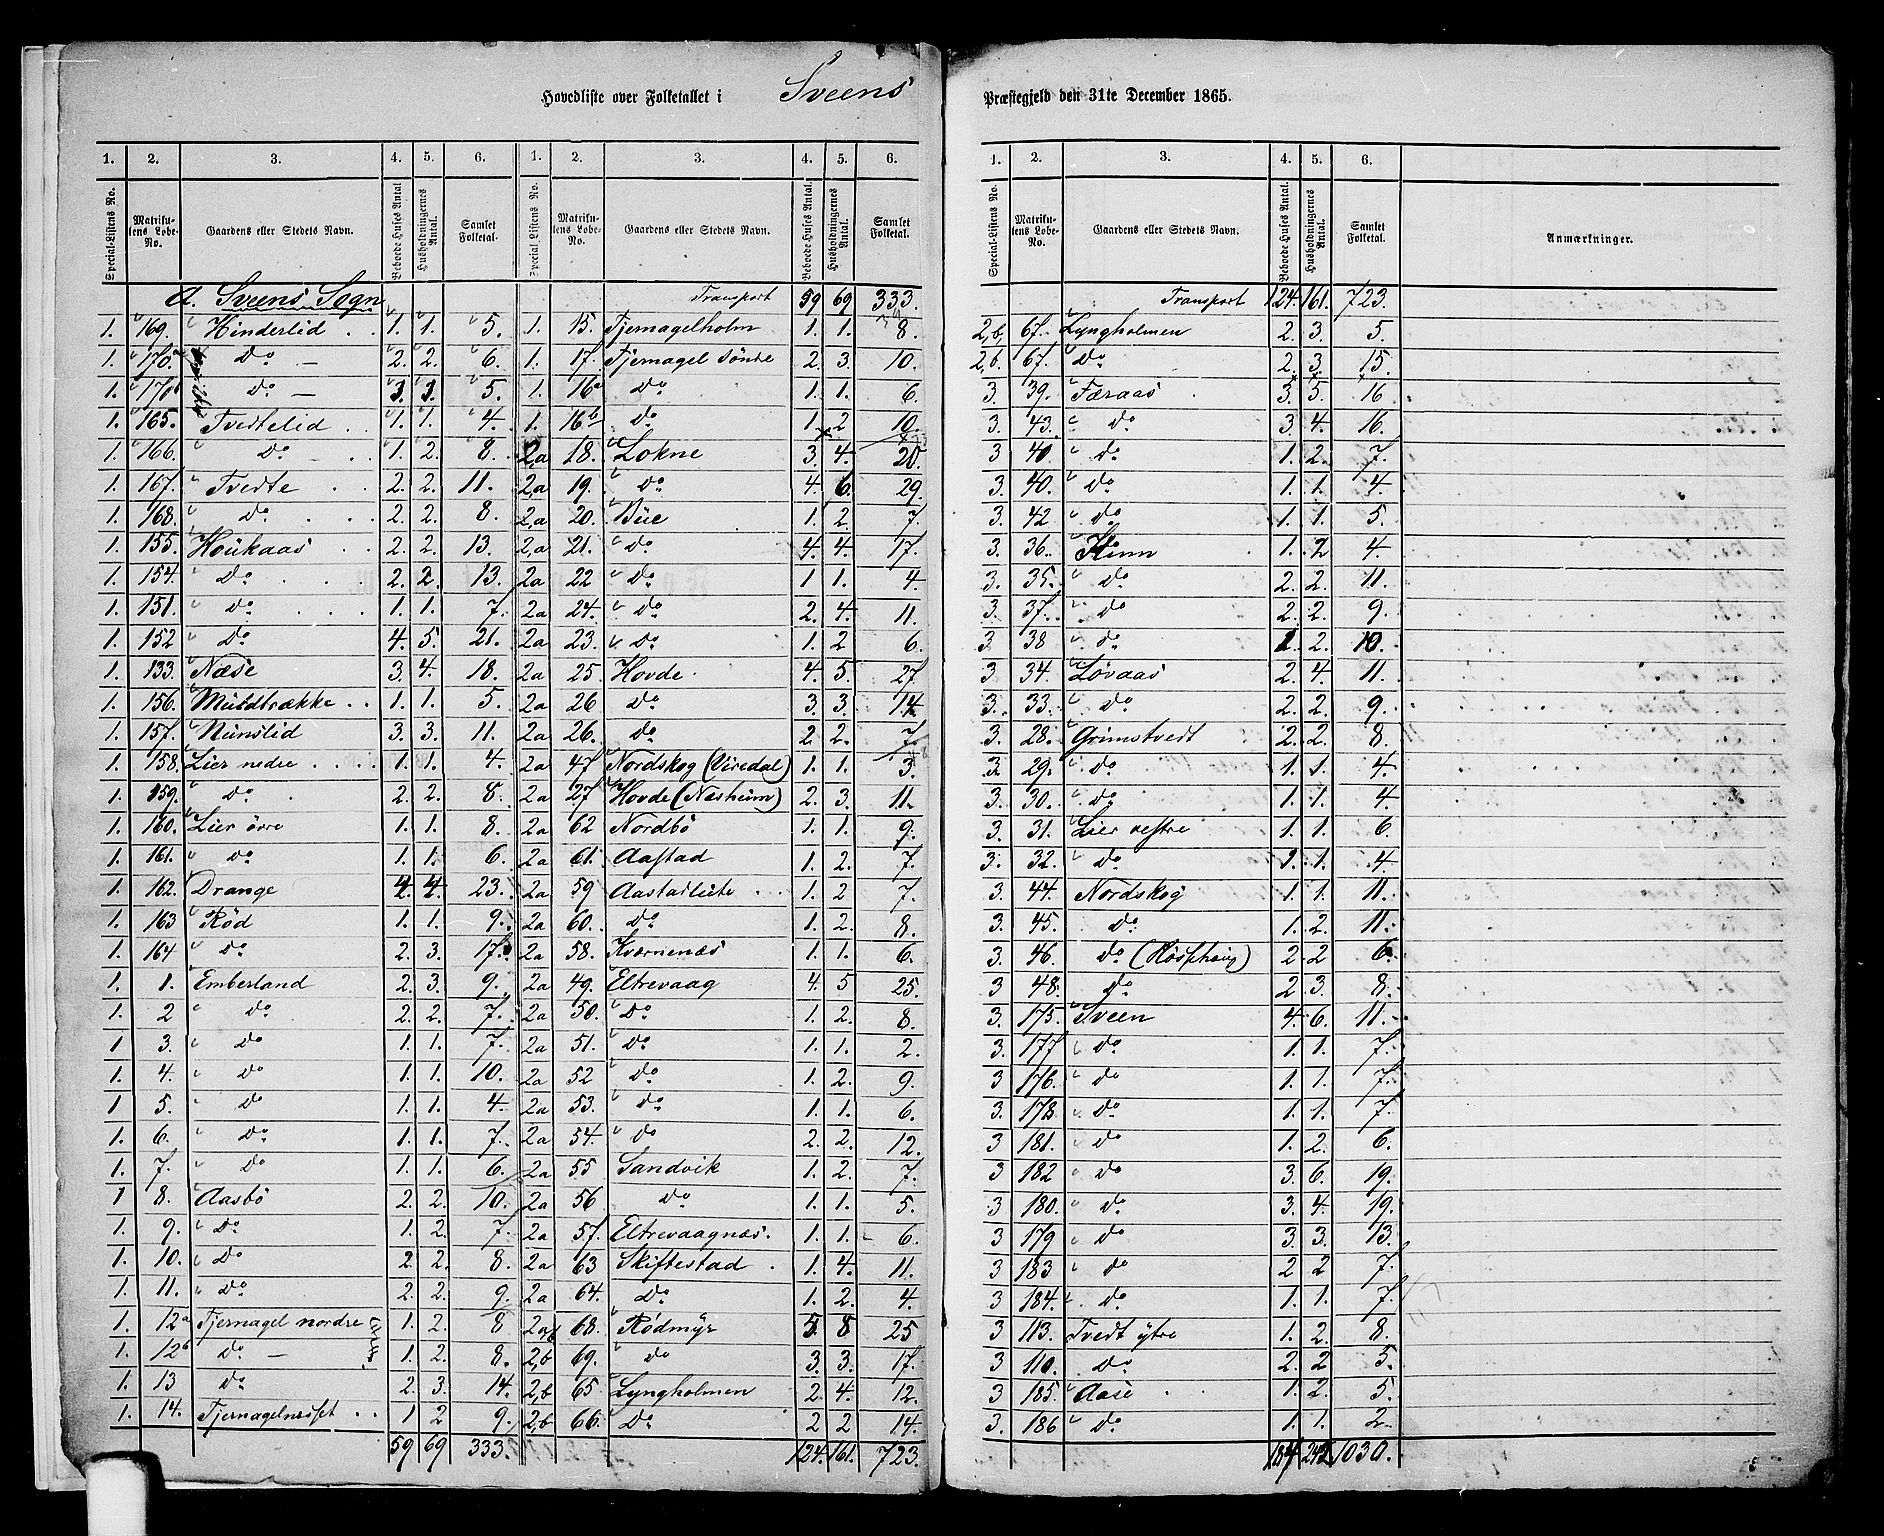 Hovedliste over Folketallet i Sveens
1. 2. 3. 4. 5. 6.
Special-Listens No. Matrikulens Lobe-No. Gaardens eller Stedets Navn. Beboede Huses Antal. Husholdningernes Antal. Samlet Folketal.
A. Sveens Sogn
1. 169. Hinderlid 1. 1. 5.
1. 170a Do 2. 2. 6.
1. 170b Do 1. 1. 5.
1. 165. Tvedtelid 1. 1. 4.
1. 166. Do 1. 2. 8.
1. 167. Tvedte 2. 2. 11.
1. 168. Do 2. 2. 8.
1. 155. Houkaas 2. 2. 13.
1. 154. Do 2. 2. 13.
1. 151. Do 1. 1. 7.
1. 152 Do 4. 5. 21.
1. 133. Næse 3. 4. 18.
1. 156. Muldbrække 1. 1. 5.
1. 157. Nunslid 3. 3. 11.
1. 158. Lier nedre 1. 1. 4.
1. 159. Do 2. 2. 8.
1. 160. Lier øvre 1. 1. 8.
1. 161. Do 1. 1. 6.
1. 162. Drange 4. 4. 23.
1. 163 Rød 1. 1. 9.
1. 164 Do 2. 3. 17.
1. 1. Emberland 2. 3. 9.
1. 2 Do 2. 2. 7.
1 3. Do 1. 1. 7.
1. 4. Do 1. 1. 10.
1 5. Do 1. 1. 4.
1. 6. Do 1. 1. 7.
1. 7. Do 1. 1. 6.
1 8. Aasbö 2. 2. 10.
1. 9. Do 1. 2. 7.
1. 10. Do 2. 2. 8.
1. 11. Do 2. 2. 9.
1. 12a Tjernagel nordre 1. 2. 8
1. 12b Do 1. 2. 8.
1. 13 Do 2. 3. 14.
1. 14. Tjernagelnesset 1 2 9.
59 69 333.
1. 2. 3. 4. 5. 6.
Special Listens No. Matrikulens Lobe-No. Gaardens eller Stedets Navn. Beboede Huses Antal. Husholdningernes Antal. Samlet Folketal.
Transport 59 69 333.
1. 15. Tjernagelholm 1. 1. 8.
1. 17. Tjernagel söndre 2. 3. 10.
1. 16a Do 1. 1. 6.
1. 16b Do 1. 2 10.
2,a 18. Lokne 3. 4. 20.
2,a 19. Do 4. 6. 29.
2,a 20. Büe 1. 2. 7.
2,a 21. Do 4. 4. 17.
2a 22 Do 1 1. 4
2a 24. Do 2. 4. 11.
2a 23. Do 1. 2 6.
2a 25 Hovde 4. 5. 27
2a 26 Do 3. 3. 14
2a 26. Do 2. 2. 7.
2a 47 Nordskog (Viredal) 1. 1. 3.
2a 27 Hovde (Næsheim) 2. 3. 11.
2a 62 Nordbö 1. 1. 9.
2a 61. Aastad 1. 2. 7.
2a 59 Aastadliete 1. 2 7.
2a 60. Do 1. 2. 8.
2a 58. Kværnenæs 1. 1. 6.
2a 49. Eltrevaag 4. 5 25.
2a 50. Do 1. 2. 8.
2a 51. Do 1. 1. 2.
2a 52 Do 1. 2. 9.
2a 53. Do 1. 1. 6.
2a 54. Do 2. 2. 12.
2a 55 Sandvik 1. 2. 7.
2a 56 Do 1. 1. 5.
2a 57. Eltrevaagnæs. 1. 1. 6.
2a 63 Skiftestad 1. 4. 11.
2a 64. Do 1. 2. 4.
68. Rödmyr 5. 8 25
2,b 69. Do 3. 3. 17.
2,b 65 Lyngholmen 2. 4. 12.
2,b 66. Do 2 2 14.
124. 161. 723.
Præstegjeld den 31te December 1865.
1. 2. 3. 4. 5. 6.
Special-Listens No. Matrikulens Lobe-No. Gaardens eller Stedets Navn. Beboede Huses Antal. Husholdningernes Antal. Samlet Folketal. Anmærkninger.
Transport 124. 161. 723.
2,b 67. Lyngholmen 2. 3. 5.
2,b. 67. Do 2. 3. 15.
3. 39. Færaas 3. 5. 16
3. 43. Do 3 4. 16.
3 40 Do 1. 2. 7.
3. 40. Do 1. 1. 4.
3. 42 Do 1. 1. 5.
3. 36. Hinn 1. 2 4.
3. 35. Do 2. 2. 11.
3. 37. Do 2. 2. 9.
3 38 Do 1. 2. 10.
3 34. Løvaas 2. 4 11.
3. 33. Do 2. 2. 9.
3. 28. Grimstvedt 2. 2. 8.
3. 29. Do 1. 1. 4.
3. 30. Do 1. 1. 4.
3. 31. Lier vestre 1. 1. 6.
3. 32. Do 1. 1. 4.
3. 44. Nordskog 1. 1. 11.
3. 45. Do 1. 2. 11.
3. 46. Do 2. 2 6.
3 48. Do 2 3. 8.
3. 175. Sveen 4. 6. 11.
3. 177 Do 1. 1. 7.
3 176. Do 1. 1. 7.
3 178. Do 1. 1. 7.
3 181. Do 1. 2. 6.
3 182 Do 3. 6. 19.
3 180. Do 3. 4. 19.
3 179 Do 3. 3. 13.
3 183 Do 2 2 7.
3 184. Do 1. 1. 7.
3 113. Tvedt ÿtre 1. 2. 8.
3 110. Do 2. 2 5.
3 185. Aase 1. 2. 5.
3. 186 Do 1. 1. 2.
184 242 1030.